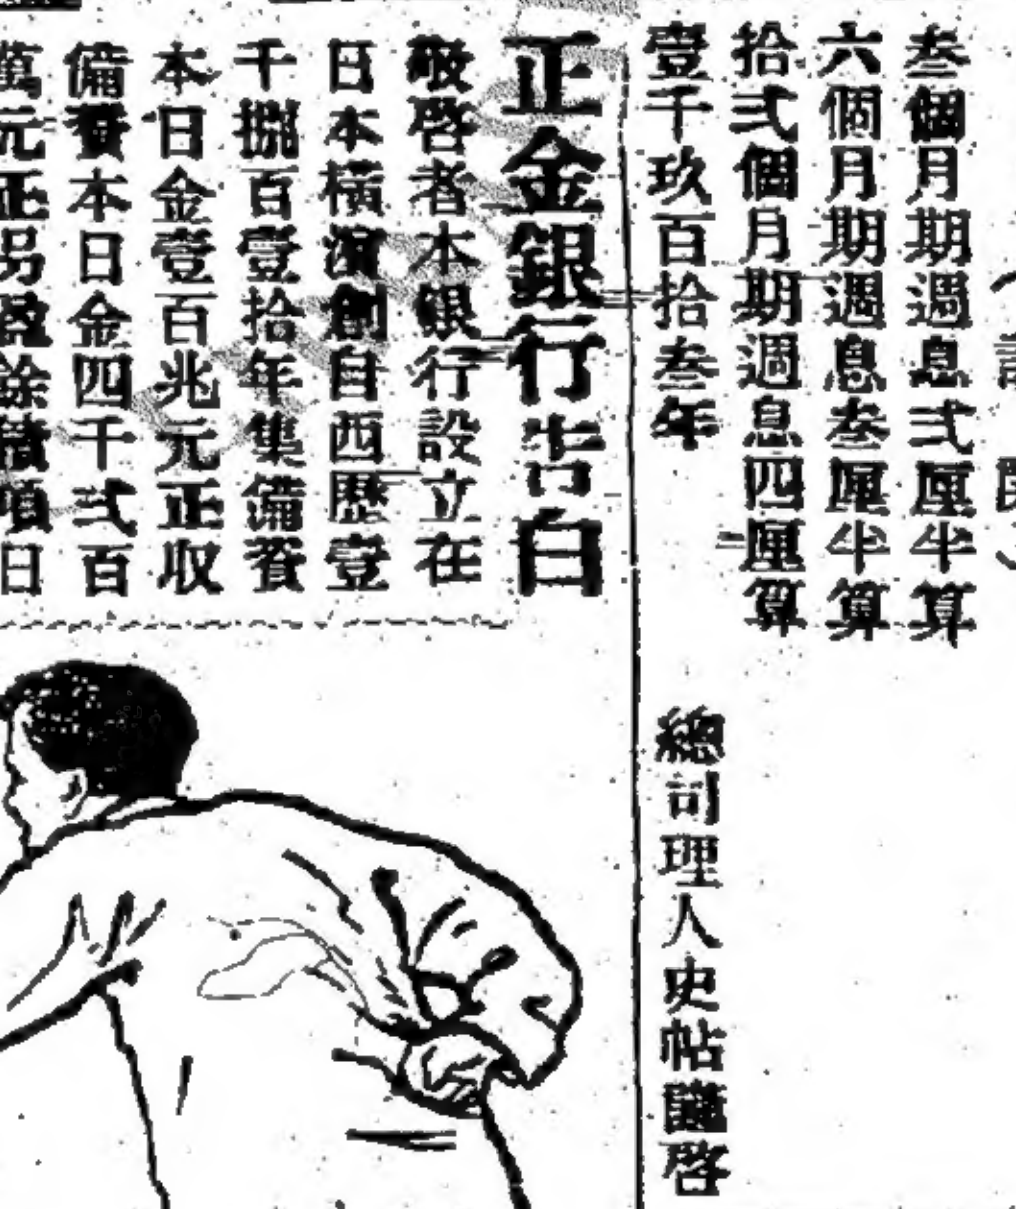 叁個月期週息弍厘半算
六個月期週息叁厘半算
拾弍個月期週息四厘算
壹千玖百拾叁年
總司理人史帖謹啓
正金銀行告白
敬啓者本銀行設立在
日本橫濱創自西歷壹
千捌百壹拾年集備資
本日金壹百兆元正收
備資本日金四千弍百
萬元正另盈餘積項日